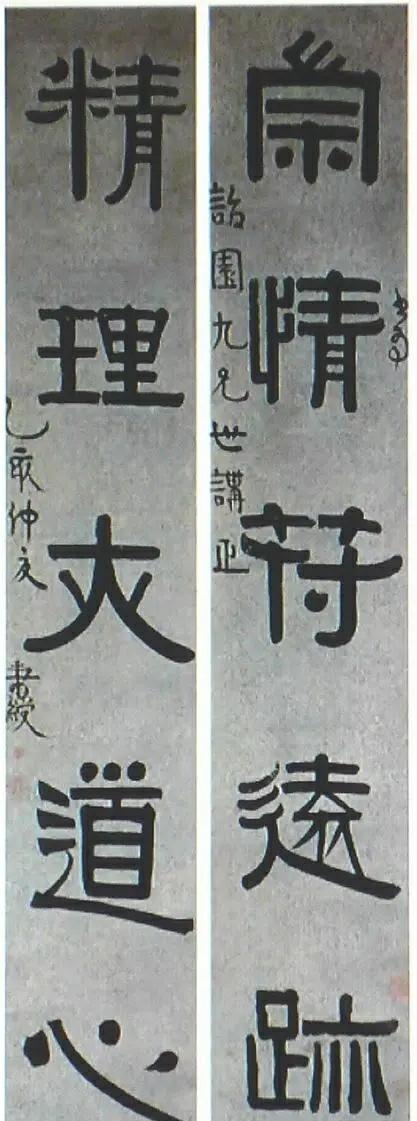 崇情符遠跡
詒園九兄世講正
精理交道心
乙亥仲
書綬